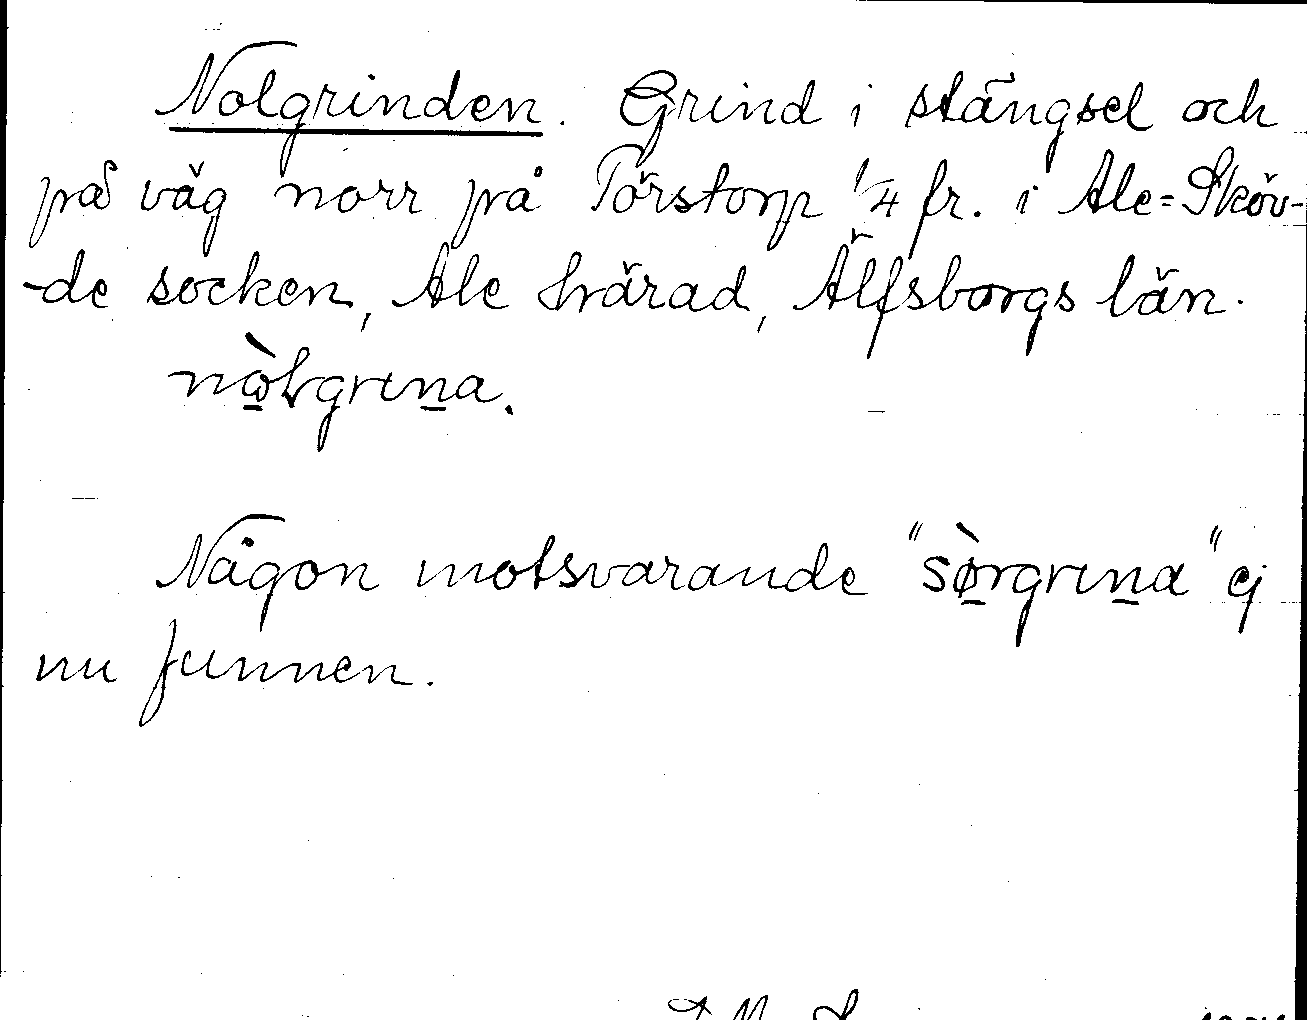 Nolgrinden. Grind i stängsel och
på väg norr på Törstorp 1/4 fr. i Ale=Sköv-
-de socken, Ale härad, Älfsborgs län.
nὼ̲ɫgrɩn̲a.
Någon motsvarande "sø̲̀rgrɩn̲a" ej
nu funnen.